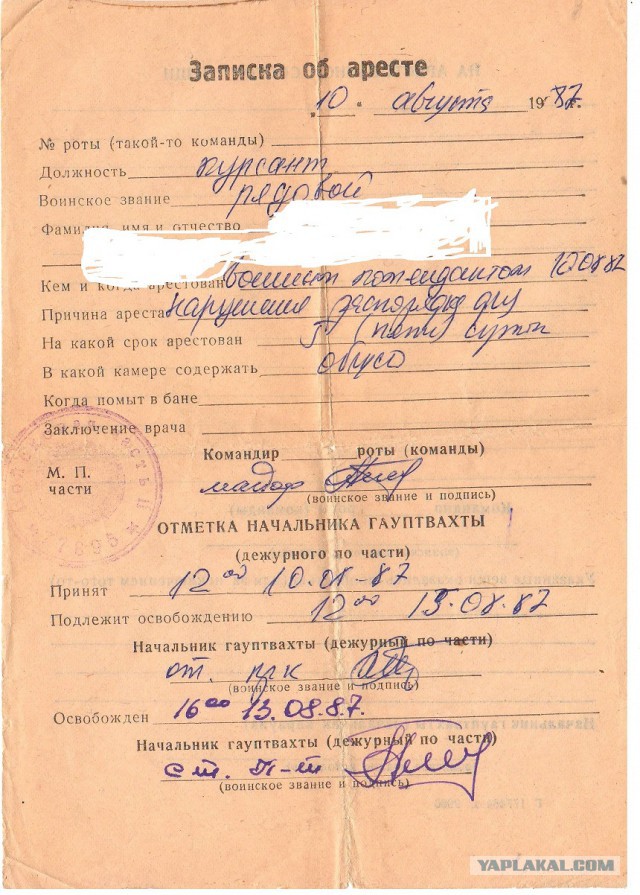 Записка об аресте
10 августа 1987г.
№ роты (такой-то команды)
Должность курсант
Воинское звание рядовой
Фамилия, имя и отчество
Кем и когда арестован военным комендантом 10.08.87
Причина ареста нарушение распорядка дня
На какой срок арестован 5 (пять) суток
В какой камере содержать общей
Когда помыт в бане
Заключение врача
Командир роты (команды)
М. П.
части
майор
(воинское звание и подпись)
ОТМЕТКА НАЧАЛЬНИКА ГАУПТВАХТЫ
(дежурного по части)
Принят 12 00 10.08-87
Подлежит освобождению 12 00 15.08.87
Начальник гауптвахты (дежурный по части)
(воинское звание и подпись)
Освобожден 16 00 13.08.87.
Начальник гауптвахты (дежурный по части)
ст. л-т
(воинское звание и подпись)
YAPLAKAL.COM